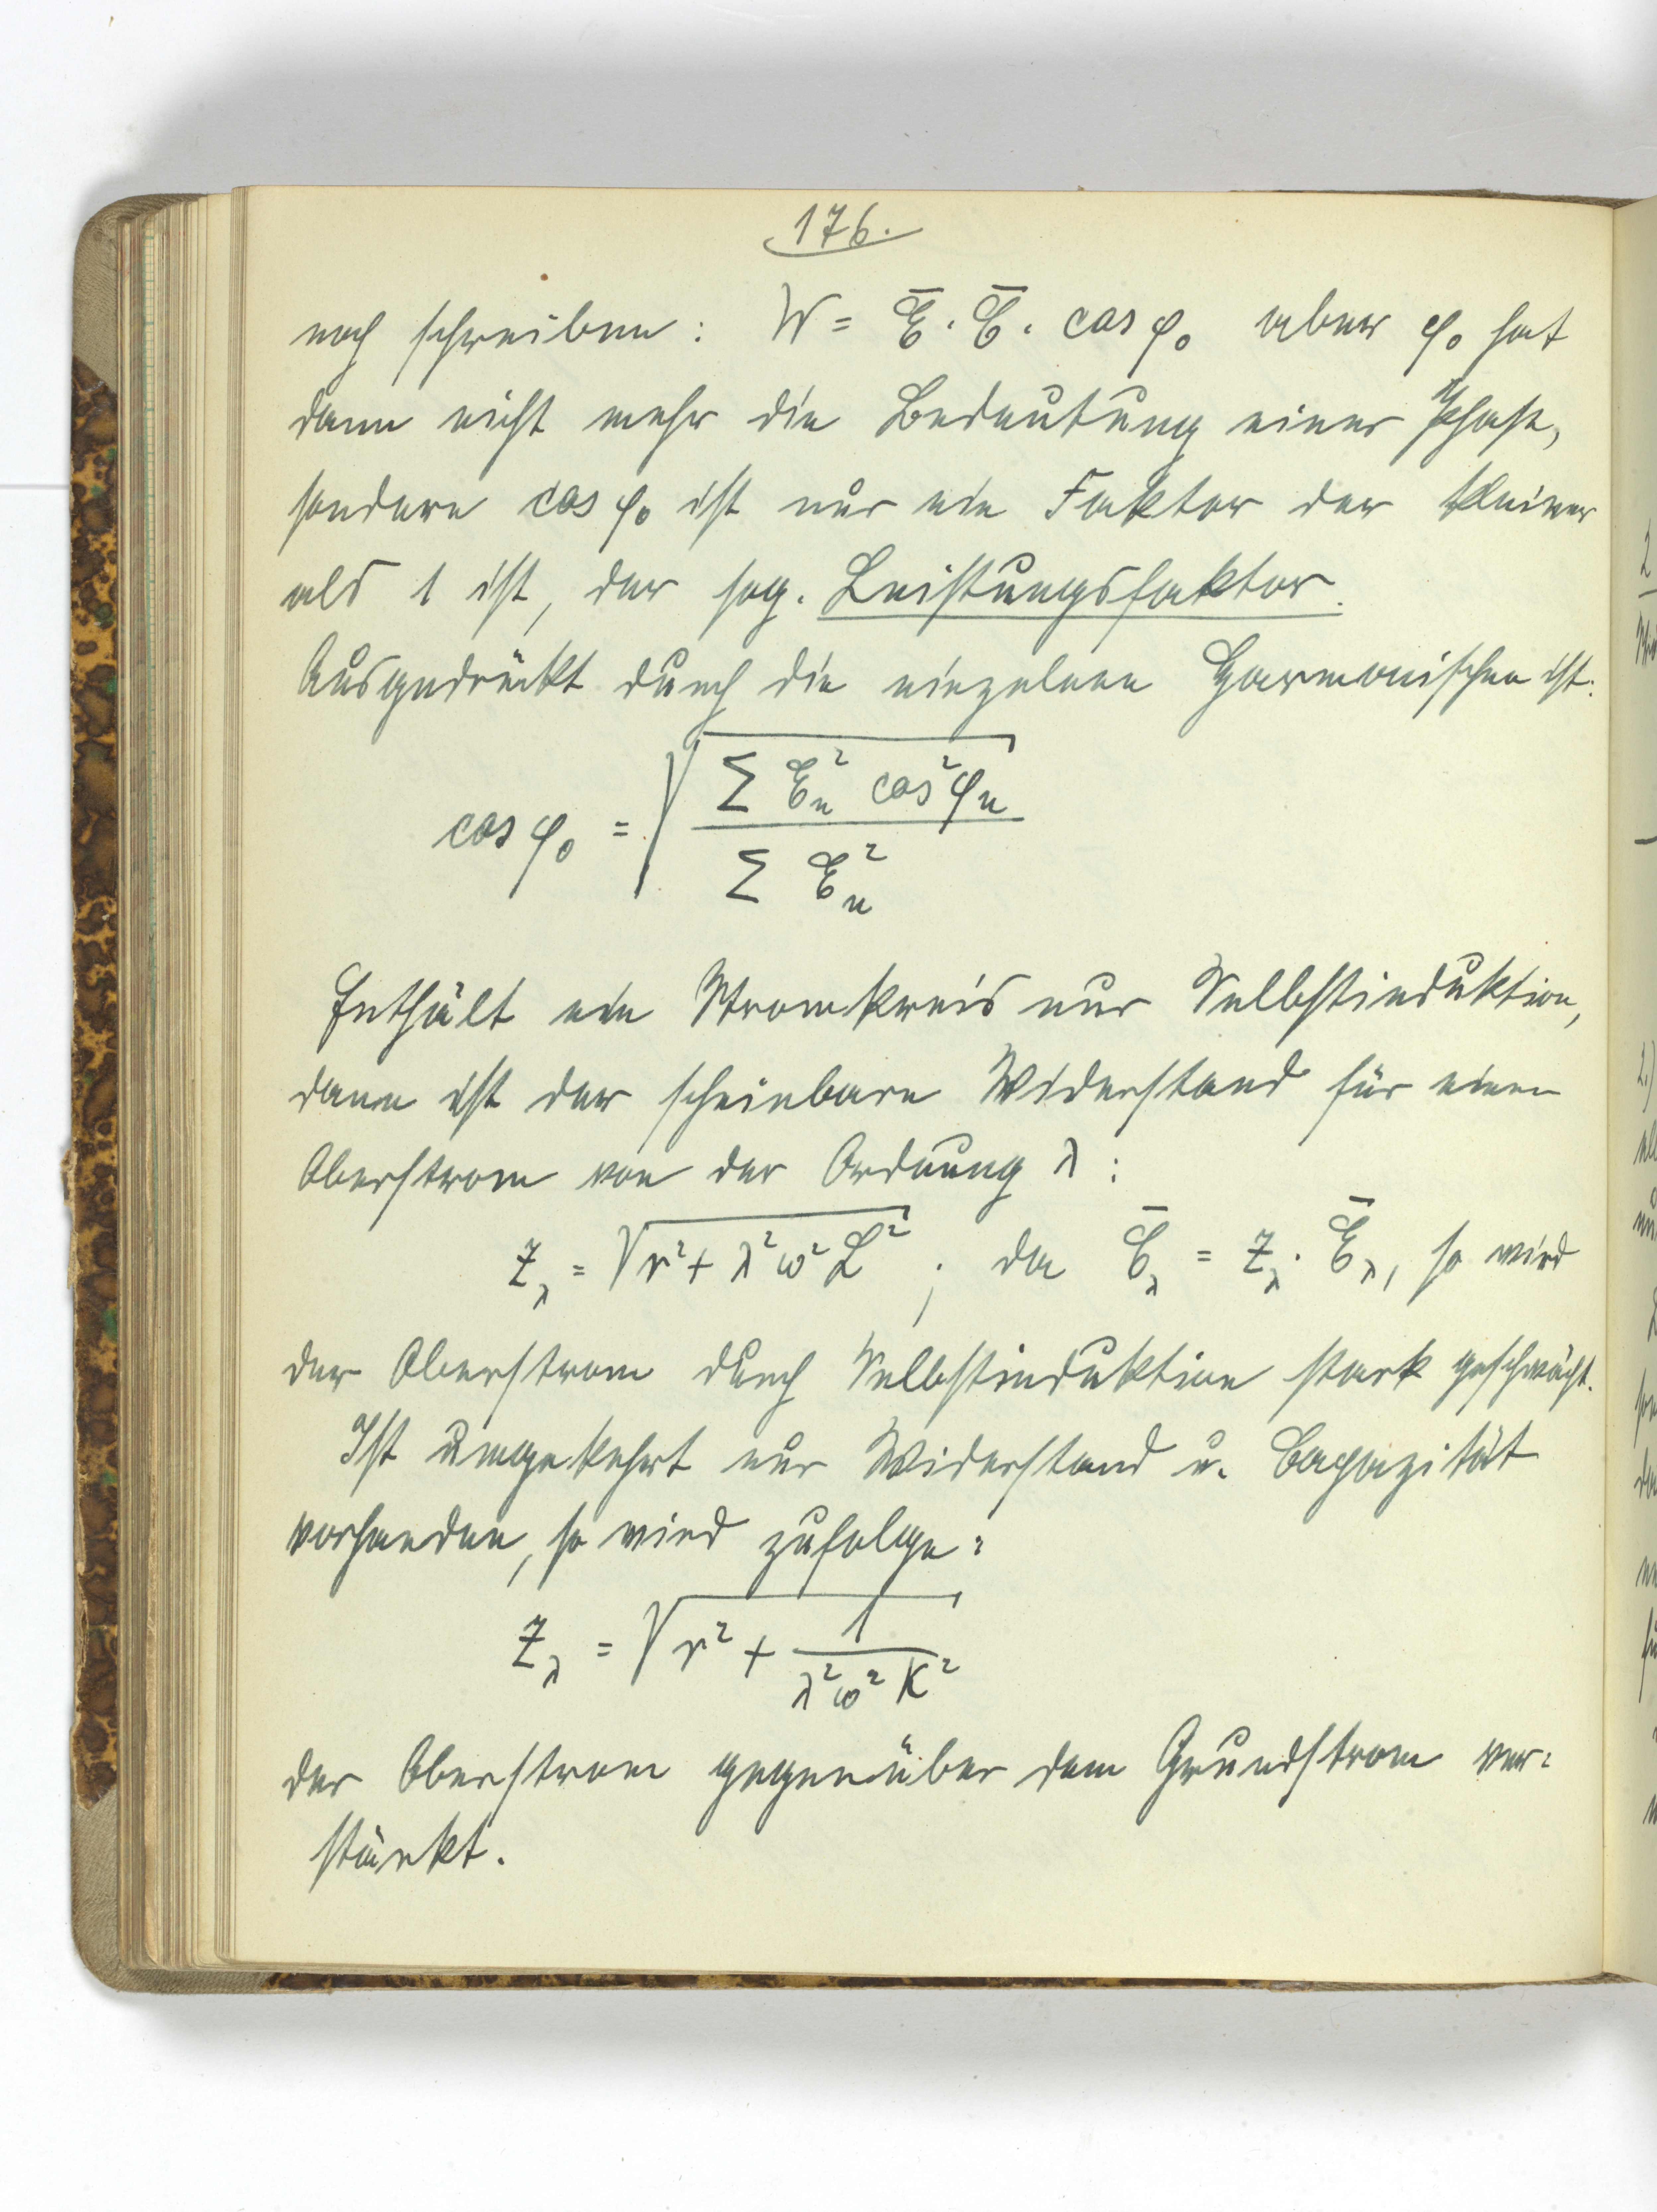 176.
noch schreiben: W = Ē · C̄ · cos φ₀ aber φ₀ hat
dann nicht mehr die Bedeutung einer Phase,
sondern cos φ₀ ist nur ein Faktor der kleiner
als 1 ist, der sog. Leistungsfaktor.
Ausgedrückt durch die einzelnen Harmonischen ist:
cos φ₀ = √(Σ Eₙ² cos² φₙ / Σ Eₙ²)
Enthält ein Stromkreis nur Selbstinduktion,
dann ist der scheinbare Widerstand für einen
Oberstrom von der Ordnung λ:
z_λ = √(r² + λ²ω²L²) ; da C̄_λ = z_λ · Ē_λ, so wird
der Oberstrom durch Selbstinduktion stark geschwächt.
Ist umgekehrt nur Widerstand u. Capazität
vorhanden, so wird zufolge:
z_λ = √(r² + 1/(λ²ω²K²))
der Oberstrom gegenüber dem Grundstrom ver=
stärkt.